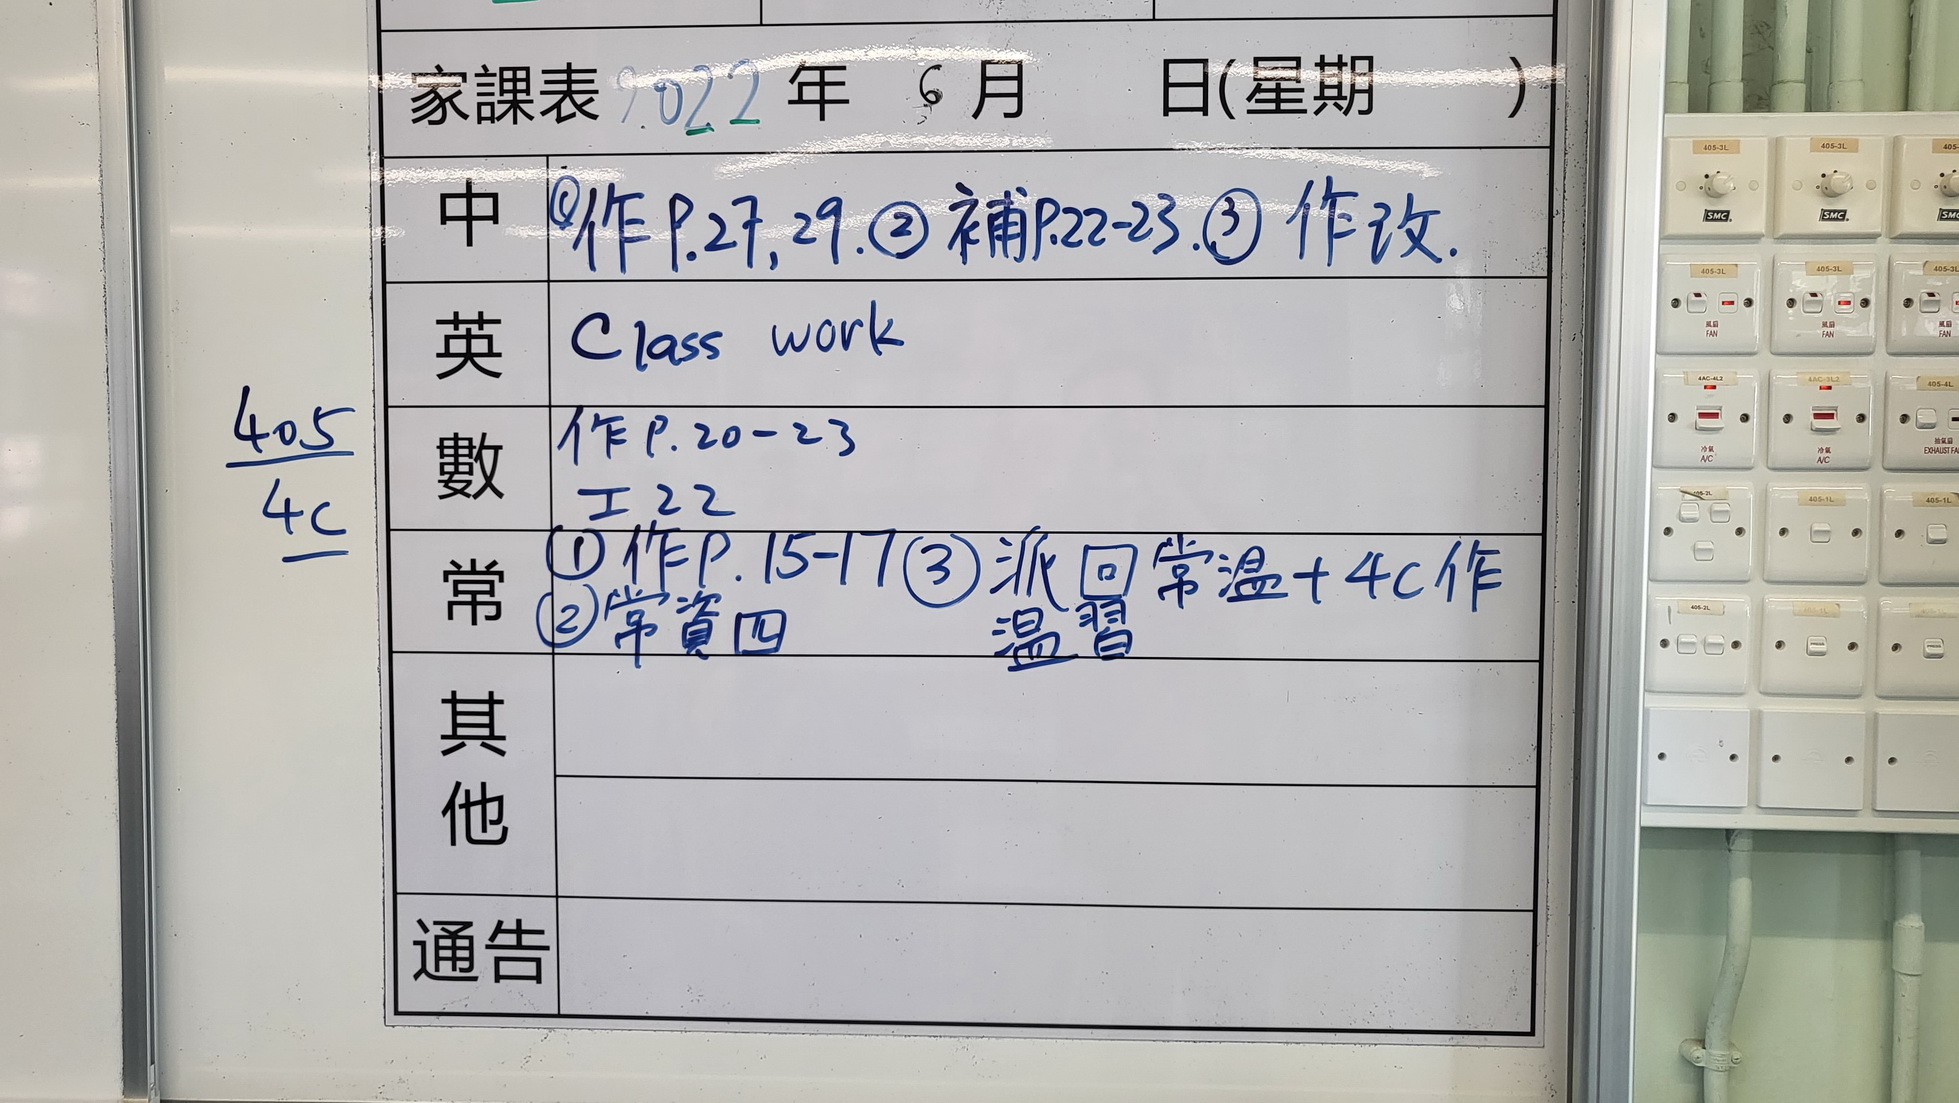 家課表 2022 年 6 月 日(星期 )
中 ①作P.27, 29. ② 補P.22-23. ③ 作改.
英 Class work
數 作P.20-23
工22
常 ①作P.15-17 ③ 派回常温+4C作
②常資四 温習
其他
通告
405
4C
405-3L
405-3L
SMC
SMC
405-3L
405-3L
405-3L
風扇
FAN
風扇
FAN
風扇
FAN
4AC-4L2
405-4L
冷氣
A/C
冷氣
A/C
抽氣扇
405-1L
405-1L
405-2L